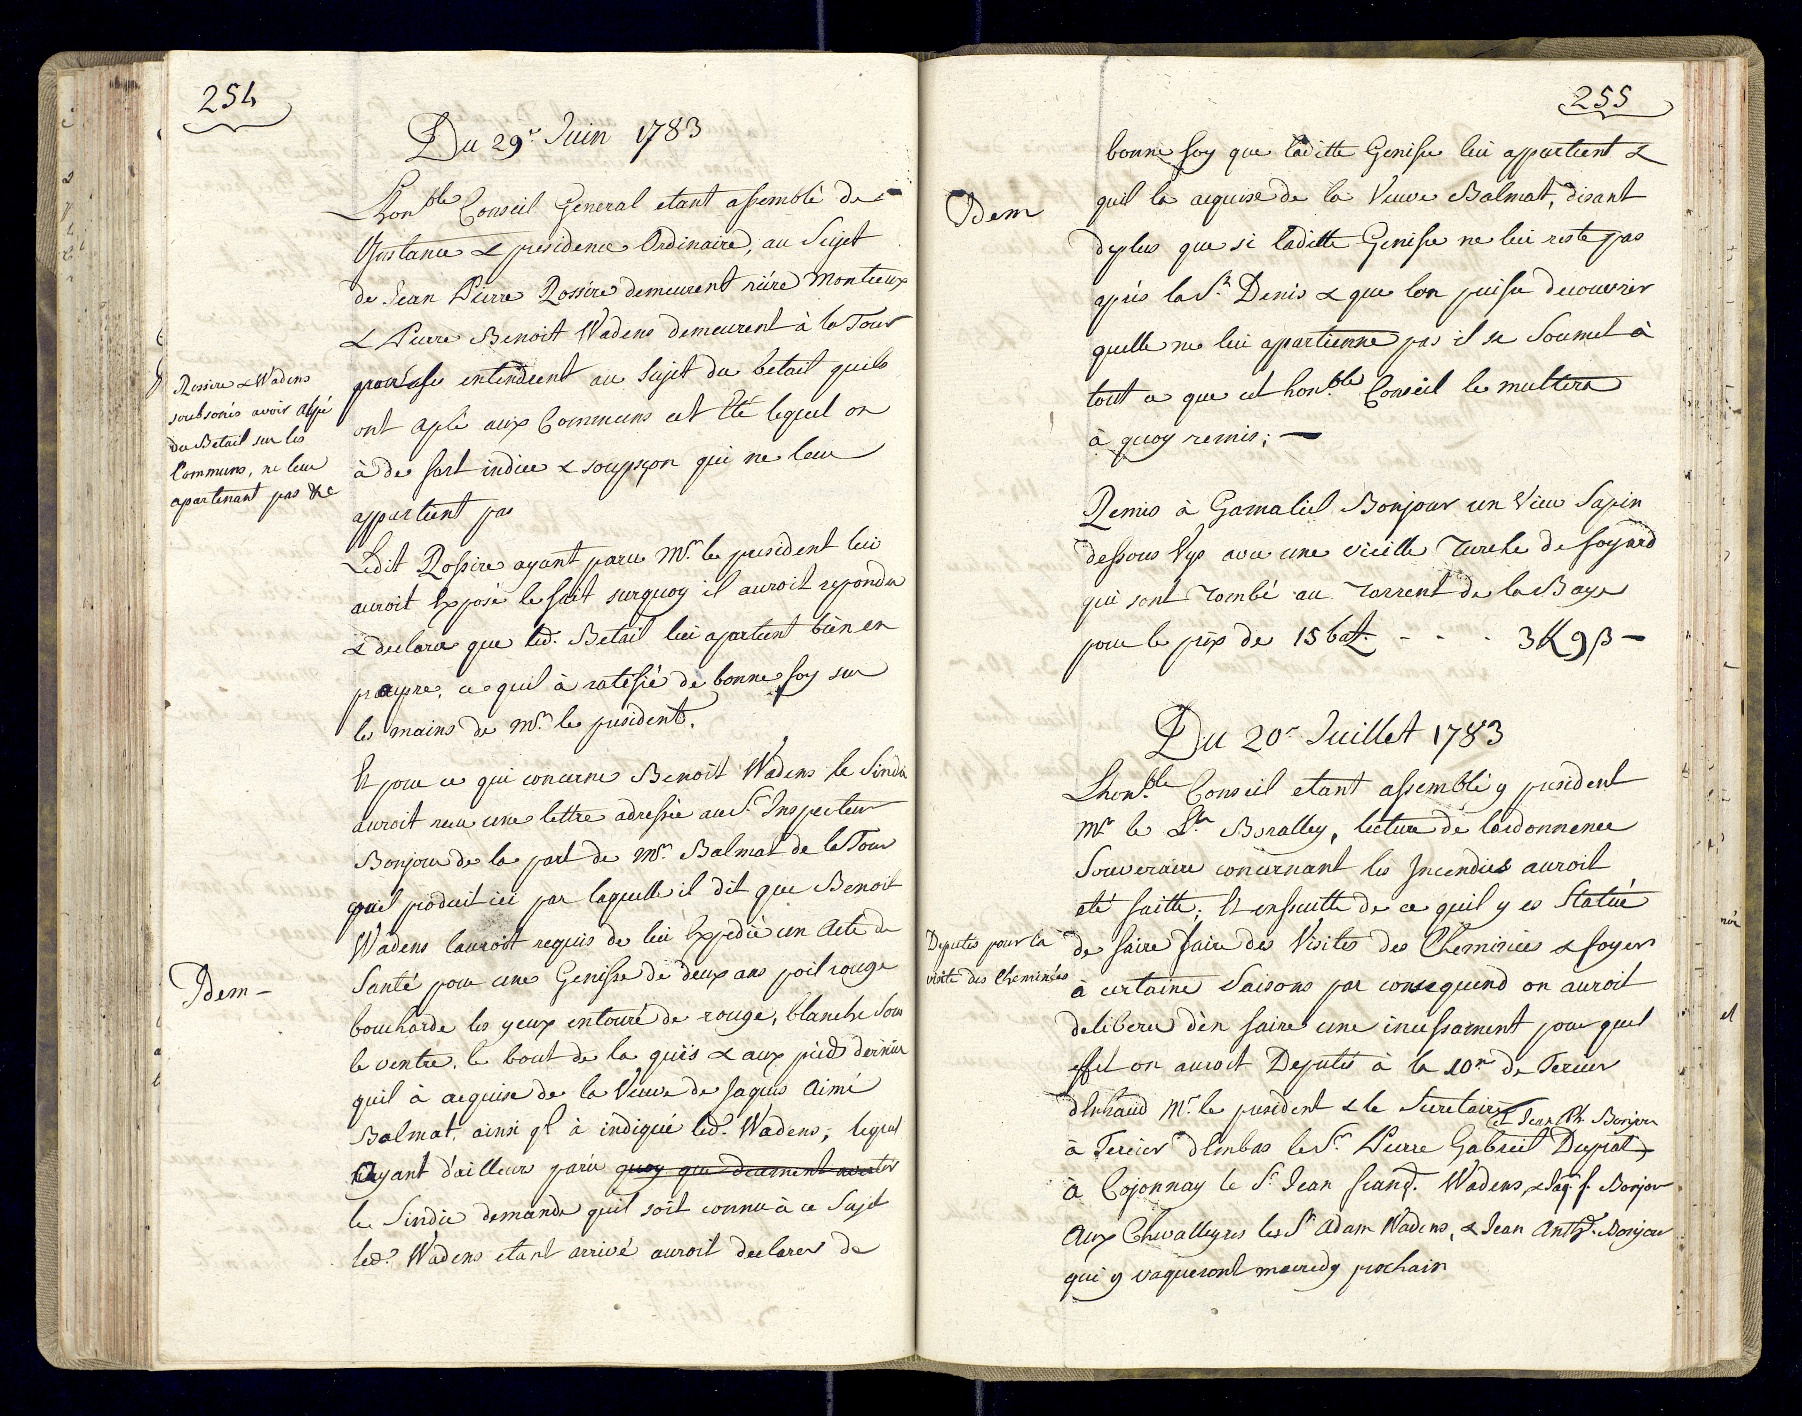 254
Du 29.e Juin 1783
L'hon.ble Conseil General etant assemblé de
Instance & presidence Ordinaire, au Sujet
de Jean Pierre Rossire demeurent riére Montreux
& Pierre Benoit Wadens demeurent à la Tour
entendeent au Sujet du betail quils
ont aplé aux Communs cet Eté lequel on
à de fort indice & soupçon qui ne leur
appartient pas
Rossire & Wadens
soubsonés avoir alpé
du Betail sur les
Communs, ne leur
apartenant pas &c
Ledit Rossire ayant paru Mr. le president lui
auroit Exposé le fait surquoy il auroit repondu
& declaré que led. Betail lui apartient bien en
propre, ce quil à ratifié de bonne foy sur
les mains de Mr. le president.
Et pour ce qui concerne Benoit Wadens le Sindic
auroit recu une lettre adressée au Sr. Inspecteur
Bonjour de la part de Mr. Balmat de la Tour
quil produit ici par laquelle il dit que Benoit
Wadens lauroit requis de lui Expedié un Acte de
Santé pour une Genisse de deux ans poil rouge
Idem -
boucharde les yeux entouré de rouge, blanche sous
le ventre, le bout de la queüs & aux pieds dernier
quil à acquise de la Veuve de Jaques Aimé
Balmat, ainsi ql. à indiqué led. Wadens, lequel
ayant d'ailleur parü quoy que deument averter
le Sindic demande quil soit connu à ce Sujet
led. Wadens etant arrivé auroit declarer de
255
bonne foy que laditte Genisse lui appartient &
Idem
quil la acquise de la Veuve Balmat, disant
deplus que si laditte Genisse ne lui reste pas
après la St. Denis & que lon puisse decouvrir
quelle ne lui apartienne pas il se Soumet à
tout ce que cet hon.ble Conseil le mettera
à quoy remis; —
Remis à Gamaliel Bonjour un Vieu Sapin
dessous Vys avec une vieille Turche de foyard
qui sont Tombé au Torrent de la Baye
pour le prix de 15 batz - - - 3 ₶ 9 ß —
Du 20.e Juillet 1783
L'hon.ble Conseil etant assemblé y president
Mr. le Ltn. Boralley, lecture de lordonnence
Souveraine concernant les Incendies auroit
eté faitte; Et enssuitte de ce quil y es Statüé
Deputés pour la
visite des Cheminées
de faire faire des Visites des Cheminées & foyers
à certaine Saisons par consequend on auroit
deliberé d'en faire une incessament pour quel
effet on auroit Deputés à la 10.ne de Tercier
dEnhaud Mr. le president & le Secretaire
et Jean Ph. Bonjour
à Tercier dEmbas le Sr. Pierre Gabriel Duprat
à Cojonnay le Sr. Jean franç. Wadens, & Jaq. f. Bonjour
Aux Chevalleyres les Sr. Adam Wadens, & Jean Anth.e Bonjour
qui y vaqueront mecredy prochain